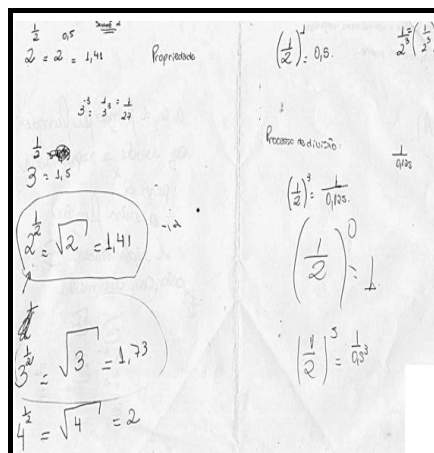 2^{1/2} = 2^{0,5} = 1,41
Propriedade
3^{-3} = 1/3^3 = 1/27
3^{1/2} = 1,5
2^{1/2} = √2 = 1,41
3^{1/2} = √3 = 1,73
4^{1/2} = √4 = 2
(1/2)^1 = 0,5.
Processo de divisão:
1/0,125
(1/2)^3 = 1/0,125.
(1/2)^0 = 1